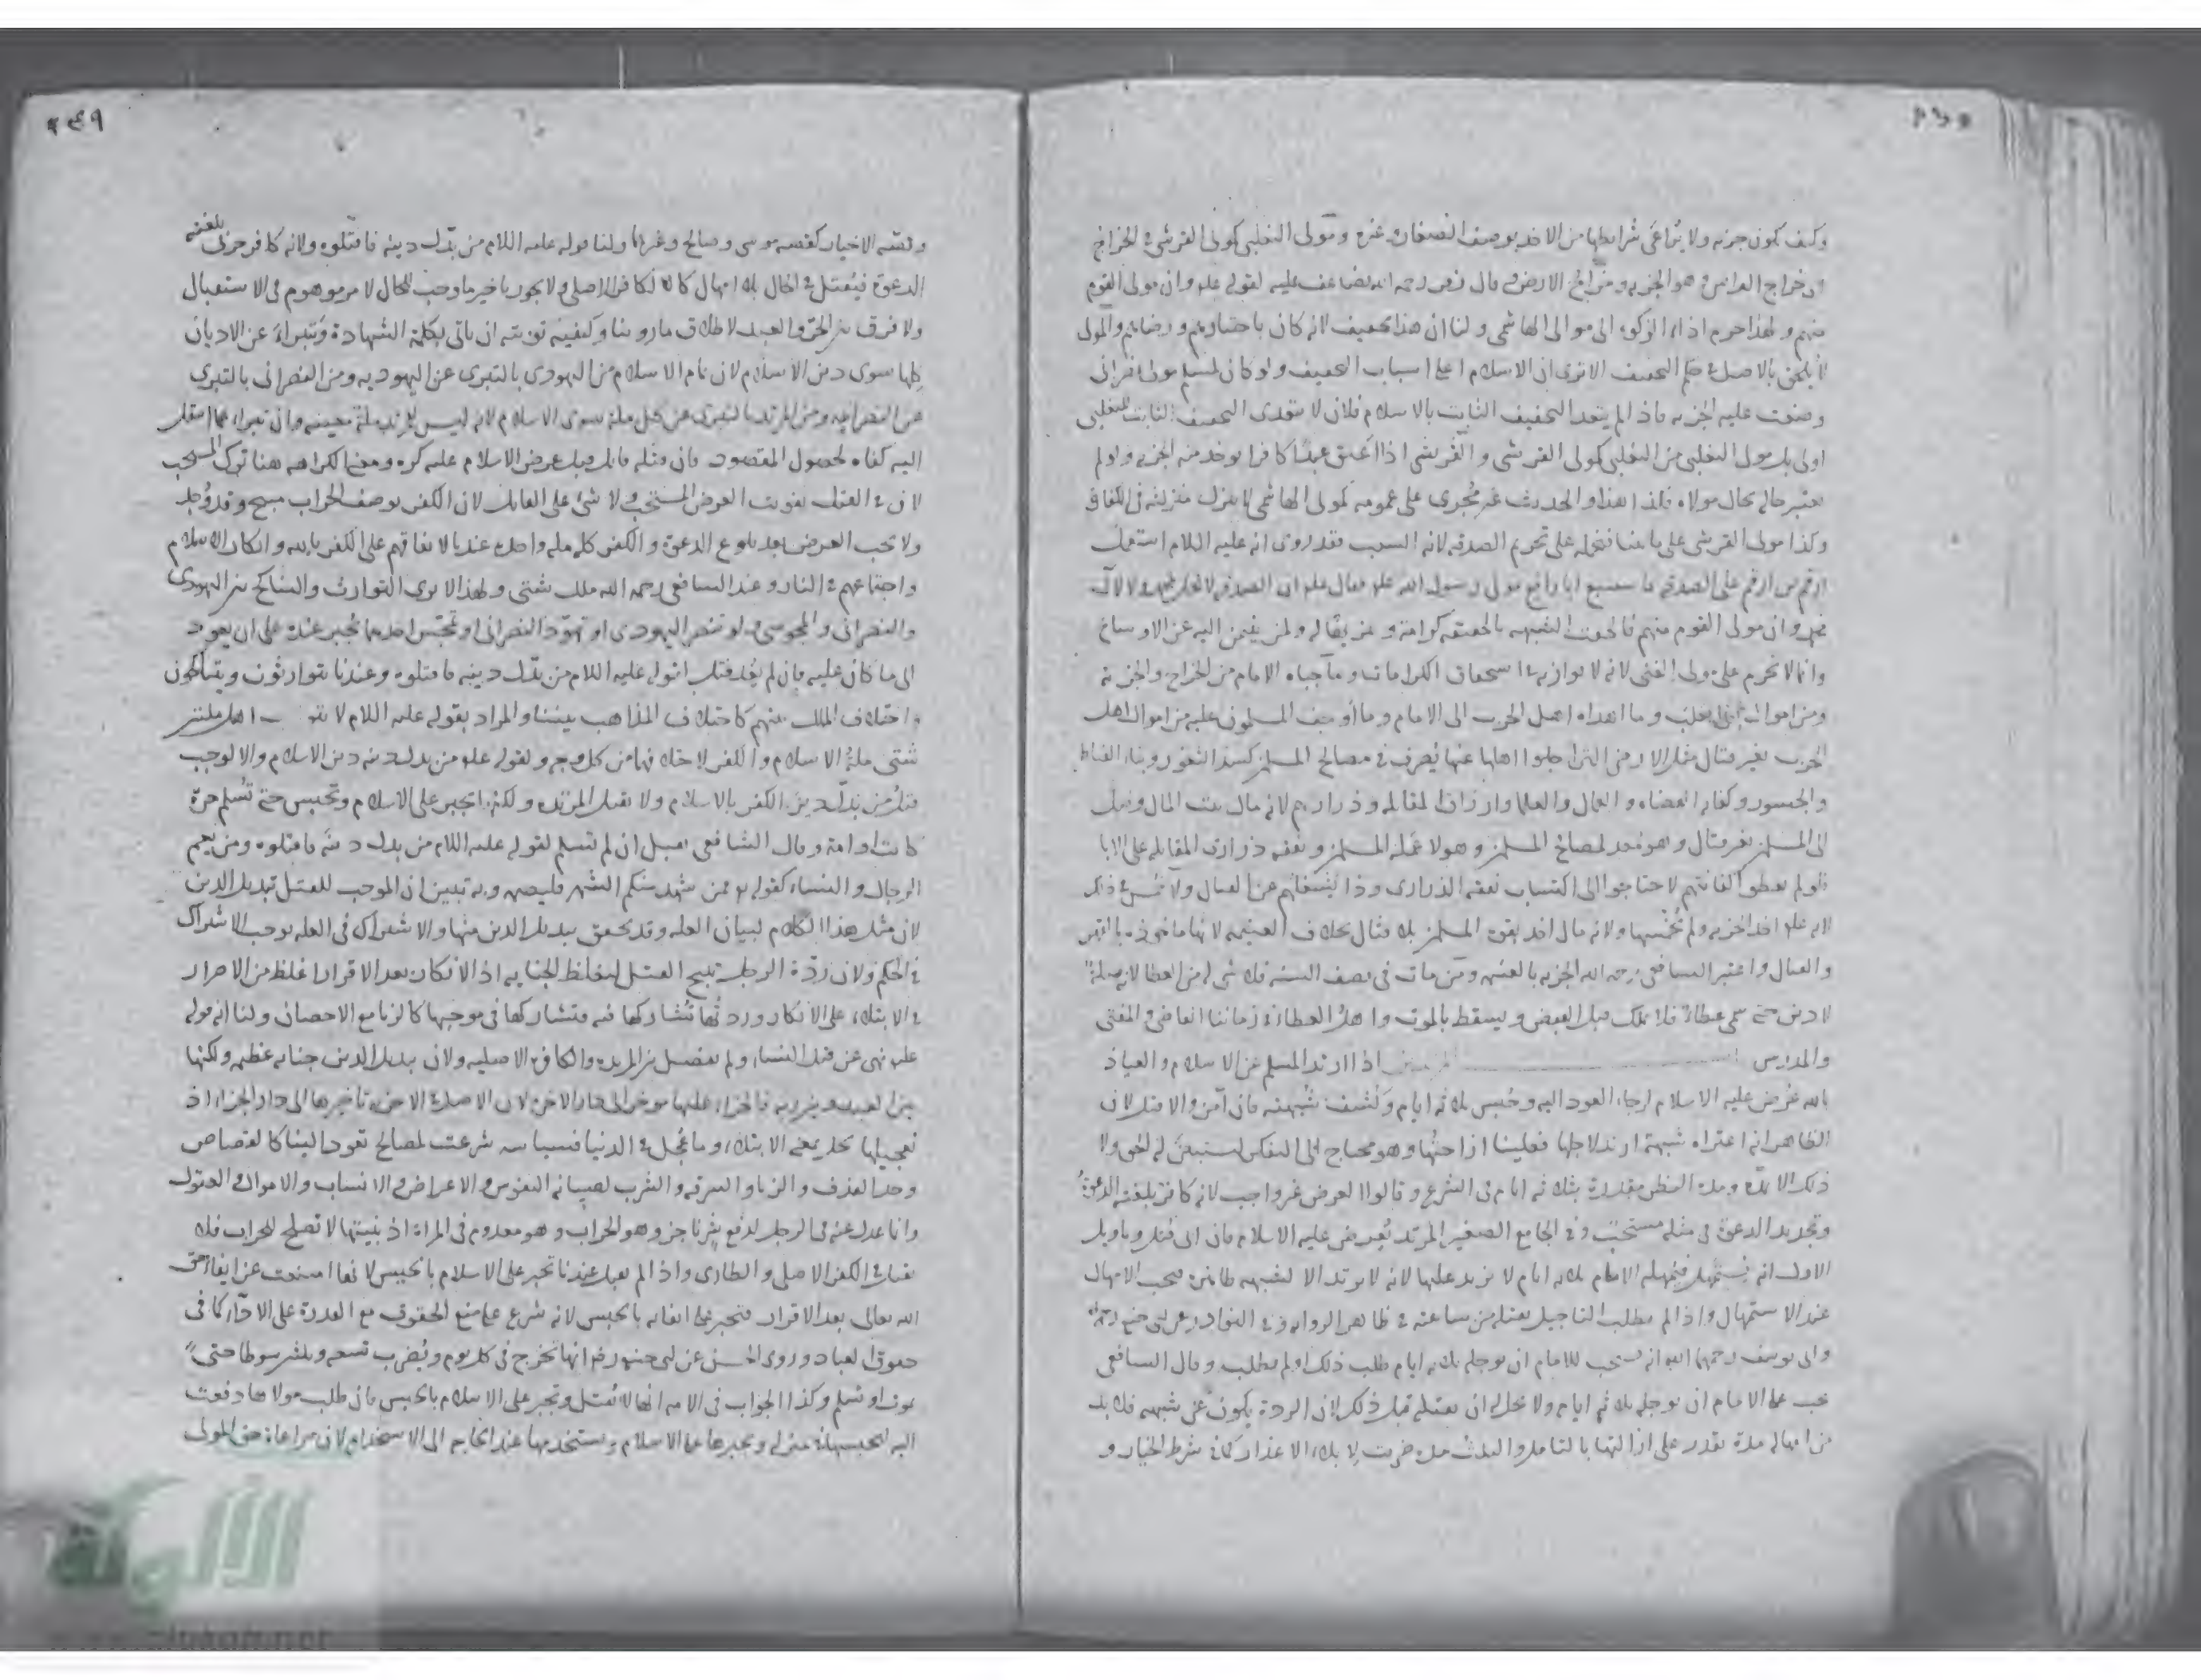 وكيف يكون جزية ولا يراعى شرائطها من الاخذ بوصف الصغار وغيره ومولى التغلبى كمولى القرشى فى الخراج
اى خراج الراس وهو الجزية وخراج الارض وقال زفر رحمه الله يضاعف عليه لقوله علم وان مولى القوم
منهم ولهذا حرم اداء الزكوة الى موالى الهاشمى ولنا ان هذا تخفيف لانه كان باختيارهم ورضاهم والمولى
لا يلحق بالاصل فى حكم التخفيف الا ترى ان الاسلام اعلى اسباب التخفيف ولو كان لمسلم مولى نصرانى
وضعت عليه الجزية فاذا لم يتعد التخفيف الثابت بالاسلام فلان لا يتعدى التخفيف الثابت للتغلبى
اولى مولى التغلبى من التغلبى كمولى القرشى والقرشى اذا اعتق عبدا كافرا يوخذ منه الجزية ولم
يعتبر حاله بحال مولاه فلذا هذا والحديث غير مجرى على عمومه كمولى الهاشمى لا ينزل منزلته فى الكفاة
وكذا مولى القرشى على تحريم الصدقة لانه السبب فقد روى انه عليه اللام استعمل
ارقم بن ارقم على الصدقة فاستتبع ابا رافع مولى رسول الله علم فقال علم ان الصدقة لا تحل لمحمد ولا لآل
محمد وان مولى القوم منهم فالحقت الشبهة بالحقيقة كرامة
وانما لا تحرم على مولى الغنى لانه لا يوازيه فى استحقاق الكرامات وما جباه الامام من الخراج والجزية
ومن اموال بنى تغلب وما اهداه اهل الحرب الى الامام وما اوجف المسلمون عليه من اموال اهل
الحرب بغير قتال مثل الارض التى اجلوا اهلها عنها يصرف فى مصالح المسلمين كسد الثغور وبناء القناطر
والجسور وكفاية القضاة والعمال والعلما وارزاق المقاتلة وذراريهم لانه مال بيت المال وصل
الى المسلمين بغير قتال وهو معد لمصالح المسلمين وهولا عملة المسلمين ونفقة ذرارى المقاتلة على الابا
فلو لم يعطوا كفايتهم لاحتاجوا الى اكتساب نفقة الذرارى وذا يشغلهم عن القتال ولا خمس فى ذلك
لانه علم اخذ الجزية ولم يخمسها ولانه مال اخذ بقوة المسلمين بلا قتال بخلاف الغنيمة لانها ماخوذة بالقهر
والقتال واعتبر الشافعى رحمه الله الجزية بالغنيمة ومن مات فى نصف السنة فلا شى له من العطا لانه صلة
لا دين حتى سمى عطاء فلا يملك قبل القبض ويسقط بالموت واهل العطا فى زماننا القاضى والمفتى
والمدرس اذا ارتد المسلم عن الاسلام والعياذ
بالله عرض عليه الاسلام لرجاء العود اليه وحبس ثلاثة ايام وكشف شبهته فان آمن والا قتل لان
الظاهر انه اعتراه شبهة ارتد لاجلها فعلينا ازاحتها وهو محتاج الى التفكر ليستبين له الحق ولا
ذلك الا بمدة ومدة النظر مقدرة بثلثة ايام فى الشرع وقالوا العرض غير واجب لانه كافر بلغته الدعوة
وتجديد الدعوة فى مثله مستحب وفى الجامع الصغير المرتد يعرض عليه الاسلام فان ابى قتل وتاويل
الاول انه يستمهل فيمهله الامام ثلاثة ايام لا يزيد عليها لانه لا يرتد الا لشبهة ظاهرة فيجب الامهال
عند الاستمهال واذا لم يطلب التاجيل يقتله من ساعته فى ظاهر الرواية وفى النوادر عن ابى حنيفة
وابى يوسف رحمهما الله انه يستحب للامام ان يوجله ثلاثة ايام طلب ذلك او لم يطلب وقال الشافعى
يجب على الامام ان يوجله ثلاثة ايام ولا يحل له ان يقتله قبل ذلك لان الردة يكون عن شبهة فلا بد
من امهاله مدة يقدر على ازالتها بالتامل والثلث مدة ضربت لابلاء الاعذار كما فى شرط الخيار و
٢٤٩
وقصة الاخيار كقصة موسى وصالح وغيرها ولنا قوله عليه اللام من بدل دينه فاقتلوه ولانه كافر حربى بلغته
الدعوة فيقتل فى الحال بلا امهال كالكافر الاصلى ولا يجوز تاخير ما وجب للحال لامر موهوم فى الاستقبال
ولا فرق بين الحر والعبد لاطلاق ما روينا وكيفية توبته ان ياتى بكلمة الشهادة ويتبرا عن الاديان
كلها سوى دين الاسلام لان تمام الاسلام من اليهودى بالتبرى عن اليهودية ومن النصرانى بالتبرى
عن النصرانية ومن المرتد بالتبرى عن كل ملة سوى الاسلام لانه ليس للمرتد ملة معينة وان تبرا عما انتقل
اليه كفاه لحصول المقصود فان قتله قاتل قبل عرض الاسلام عليه كره ومعنى الكراهة هنا ترك المستحب
لان فى القتل تفويت العرض المستحب ولا شى على القاتل لان الكفر بوصف الحراب مبيح وقد وجد
ولا يجب العرض بعد بلوغ الدعوة والكفر كله ملة واحدة عندنا لاتفاقهم على الكفر بالله وانكار الاسلام
واجتماعهم فى النار وعند الشافعى رحمه الله ملل شتى ولهذا لا يرى التوارث والتناكح بين اليهودى
والنصرانى والمجوسى ولو تنصر اليهودى او تهود النصرانى او تمجس احدهما يجبر عنده على ان يعود
الى ما كان عليه فان لم يعد قتل لقوله عليه اللام من بدل دينه فاقتلوه وعندنا يتوارثون ويتناكحون
واختلاف الملل بينهم كاختلاف المذاهب بيننا والمراد بقوله عليه اللام لا اهل ملتين
شتى ملة الاسلام والكفر لاختلافهما من كل وجه ولقوله علم من بدل دينه دين الاسلام والا لوجب
قتل من بدل دين الكفر بالاسلام ولا تقتل المرتدة ولكن تجبر على الاسلام وتحبس حتى تسلم حرة
كانت او امة وقال الشافعى تقتل ان لم تسلم لقوله عليه اللام من بدل دينه فاقتلوه ومن يعم
الرجال والنساء كقوله فمن شهد منكم الشهر فليصمه وبه تبين ان الموجب للقتل تبديل الدين
لان مثل هذا الكلام لبيان العلة وقد تحقق تبديل الدين منها والاشتراك فى العلة يوجب الاشتراك
فى الحكم ولان ردة الرجل تبيح القتل لتغلظ الجناية اذ الانكار بعد الاقرار اغلظ من الاصرار
فى الابتداء على الانكار وردتها تشاركها فيه فتشاركها فى موجبها كالزنا مع الاحصان ولنا انه
علم نهى عن قتل النساء ولم يفصل بين المرتدة والكافرة الاصلية ولان تبديل الدين جناية عظيمة ولكنها
بين العبد وربه فالجزاء عليها موخر الى دار الاخرة لان الاصل فى الاجزية تاخيرها الى دار الجزاء اذ
تعجيلها يخل بمعنى الابتلاء وما عجل فى الدنيا فسياسة شرعت لمصالح تعود الينا كالقصاص
وحد القذف والزنا والسرقة والشرب لصيانة النفوس والاعراض والانساب والاموال والعقول
وانما عدل عنه فى الرجل لدفع شر ناجز وهو الحراب وهو معدوم فى المراة اذ بنيتها لا تصلح للحراب فلا
تقتل فى الكفر الاصلى والطارى واذا لم تقتل عندنا تجبر على الاسلام بالحبس لانها امتنعت عن ايفاء حق
الله تعالى بعد الاقرار فتجبر على ايفائه بالحبس لانه شرع على منع الحقوق مع القدرة على الاداء كما فى
حقوق العباد وروى الحسن عن ابى حنيفة رض انها تخرج فى كل يوم وتضرب تسعة وثلثين سوطا حتى
تموت او تسلم وكذا الجواب فى الامة انها لا تقتل وتجبر على الاسلام بالحبس فان طلب مولاها دفعت
اليه ليحبسها فى منزله ويجبرها على الاسلام ويستخدمها عند الحاجة الى الاستخدام لان مراعاة حق المولى
الألوكة